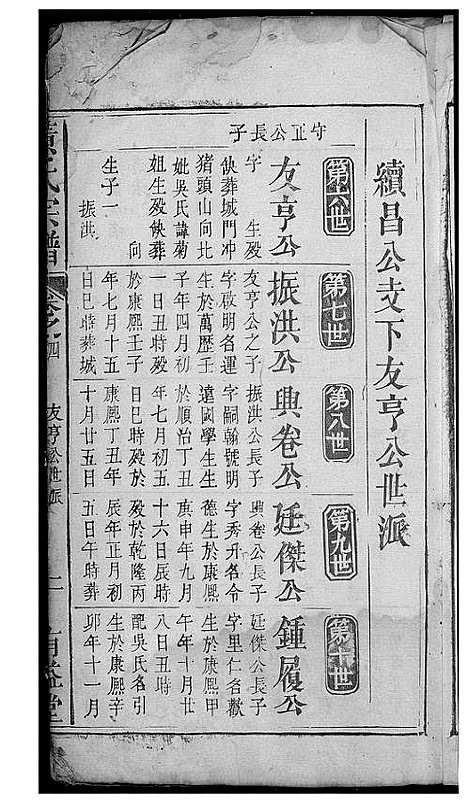 續昌公支下友亨公世派
第六世
第七世
第八世
第九世
第十世
守正公長子
友亨公
字 生殁
佚葬城門冲
猪頭山向比
妣吳氏諱菊
姐生殁佚葬
向
生子一
振洪
振洪公
友亨公之子
字啟明名運
生於萬歷壬
子年四月初
一日丑時殁
於康熙壬子
年七月十五
日巳時葬城
興卷公
振洪公長子
字嗣翰號明
遠國學生生
於順治丁丑
年七月初五
日巳時殁於
康熙丁丑年
十月廿五日
廷傑公
興卷公長子
字秀升名令
德生於康熙
庚申年九月
十六日辰時
殁於乾隆丙
辰年正月初
五日午時葬
鍾履公
廷傑公長子
字里仁名歡
生於康熙甲
午年十月廿
八日丑時
配吳氏名引
生於康熙辛
卯年十一月
氏宗譜
卷之四
友亨公世派